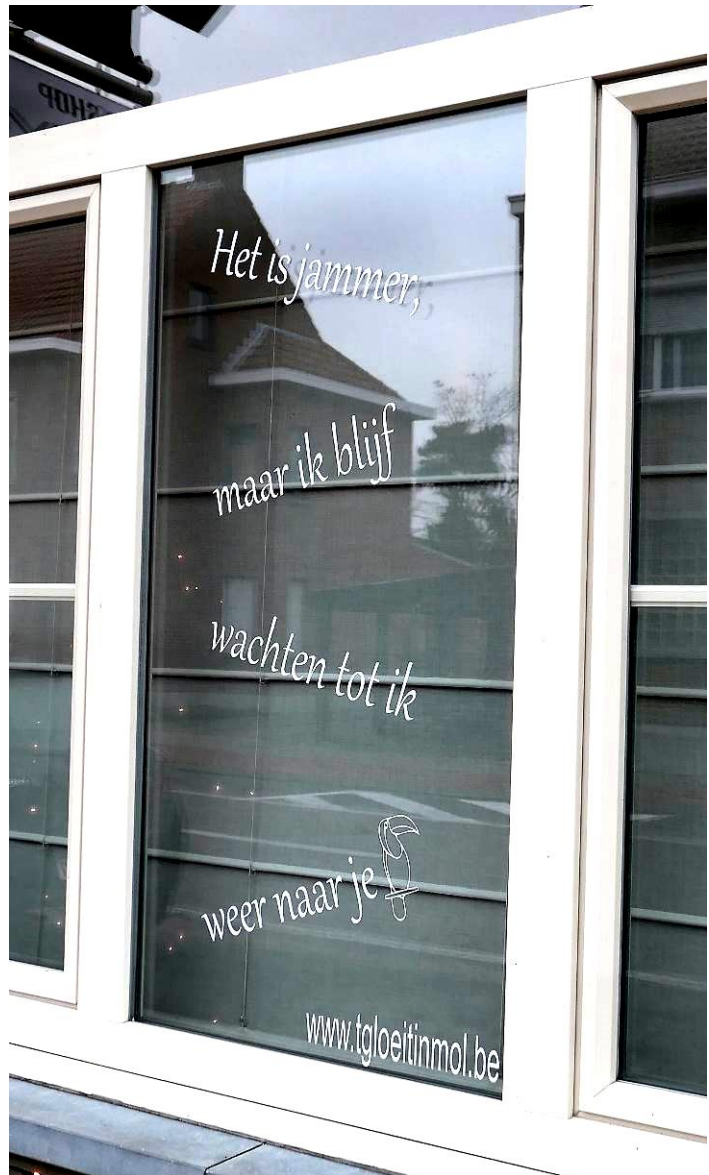 SHOP
Het is jammer,
maar ik blijf
wachten tot ik
weer naar je
www.tgloeitinmol.be